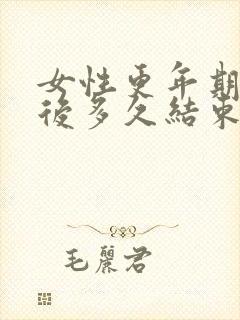 女性更年期
後多久結束
毛麗君